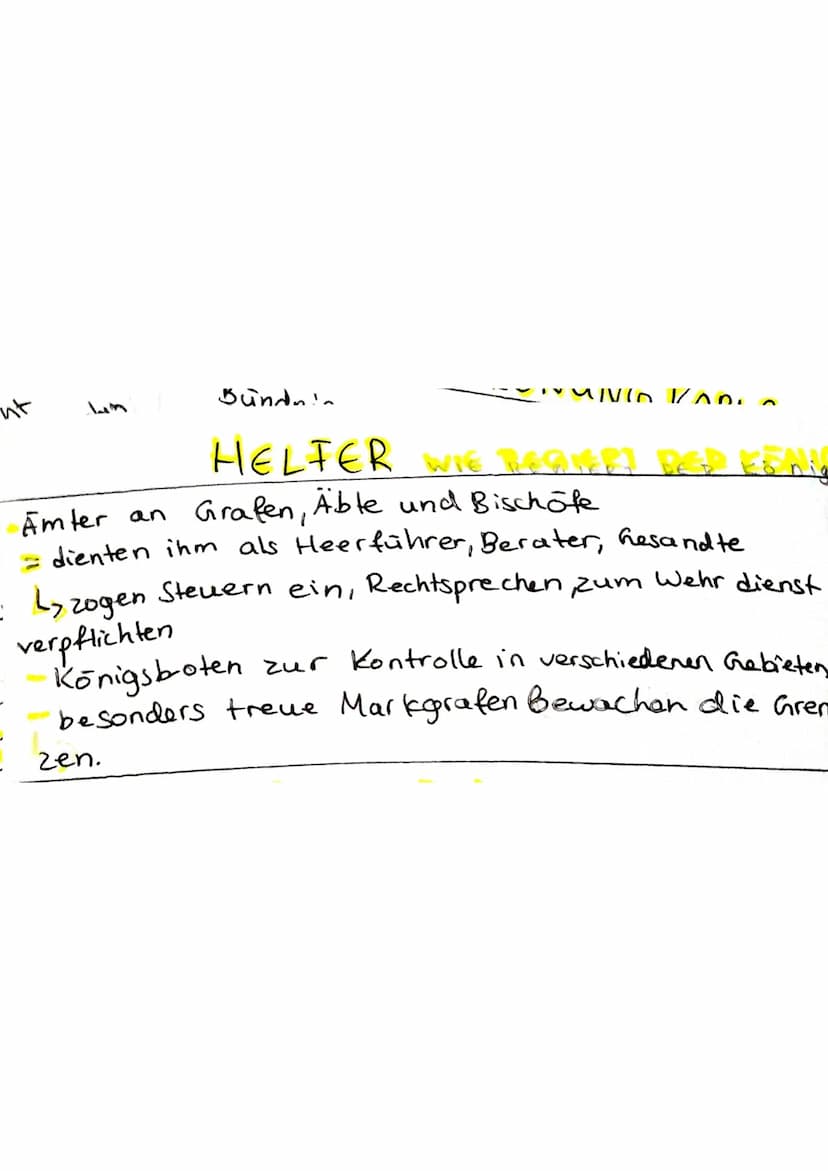 HELFER WIE REGIERT DER KÖNIG
- Ämter an Grafen, Äbte und Bischöfe
= dienten ihm als Heerführer, Berater, Gesandte
↳ zogen Steuern ein, Rechtsprechen, zum Wehr dienst
verpflichten
- Königsboten zur Kontrolle in verschiedenen Gebieten
- besonders treue Markgrafen Bewachen die Gren
zen.